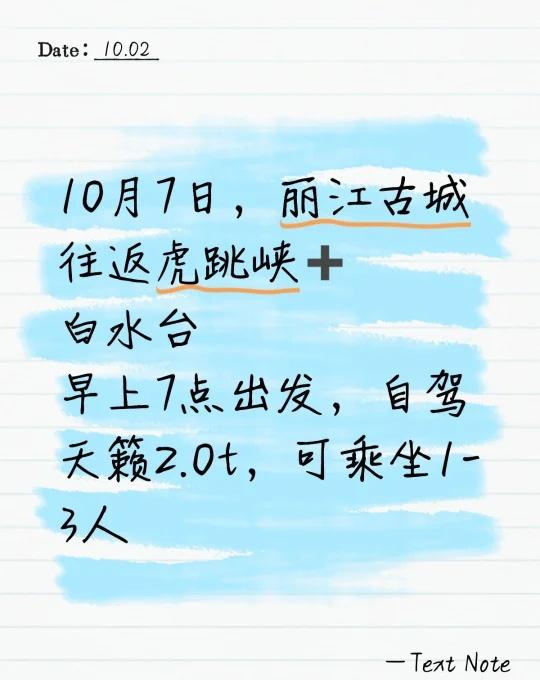 Date: 10.02
10月7日，丽江古城
往返虎跳峡➕
白水台
早上7点出发，自驾
天籁2.0t，可乘坐1-
3人
—Text Note